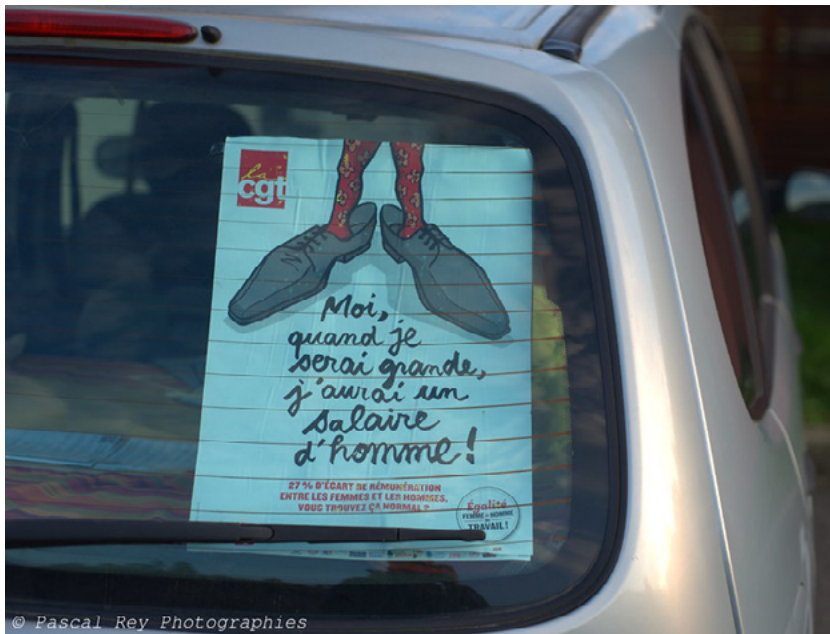 la
cgt
Moi,
quand je
serai grande,
j'aurai un
salaire
d'homme!
27 % D'ÉCART DE RÉMUNÉRATION
ENTRE LES FEMMES ET LES HOMMES,
VOUS TROUVEZ ÇA NORMAL ?
Égalité
FEMME HOMME
TRAVAIL!
© Pascal Rey Photographies